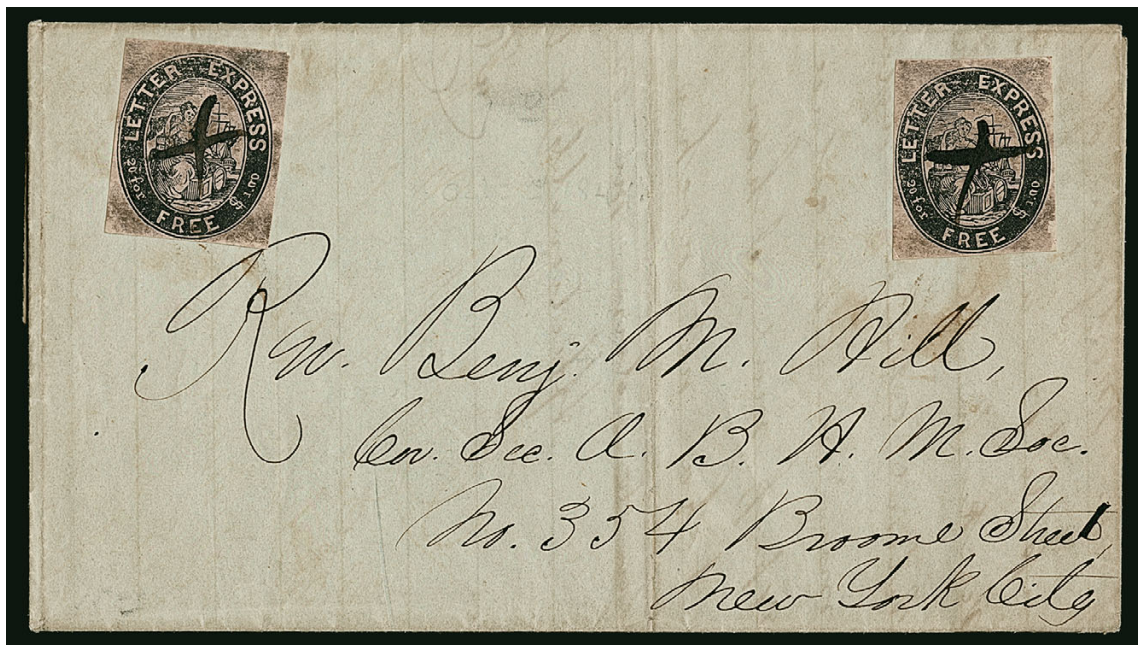 LETTER EXPRESS
20 for FREE $1.00
LETTER EXPRESS
20 for FREE $1.00
Rev. Benj. M. Hill,
Cor. Sec. A. B. H. M. Soc.
No. 354 Broome Street,
New York City